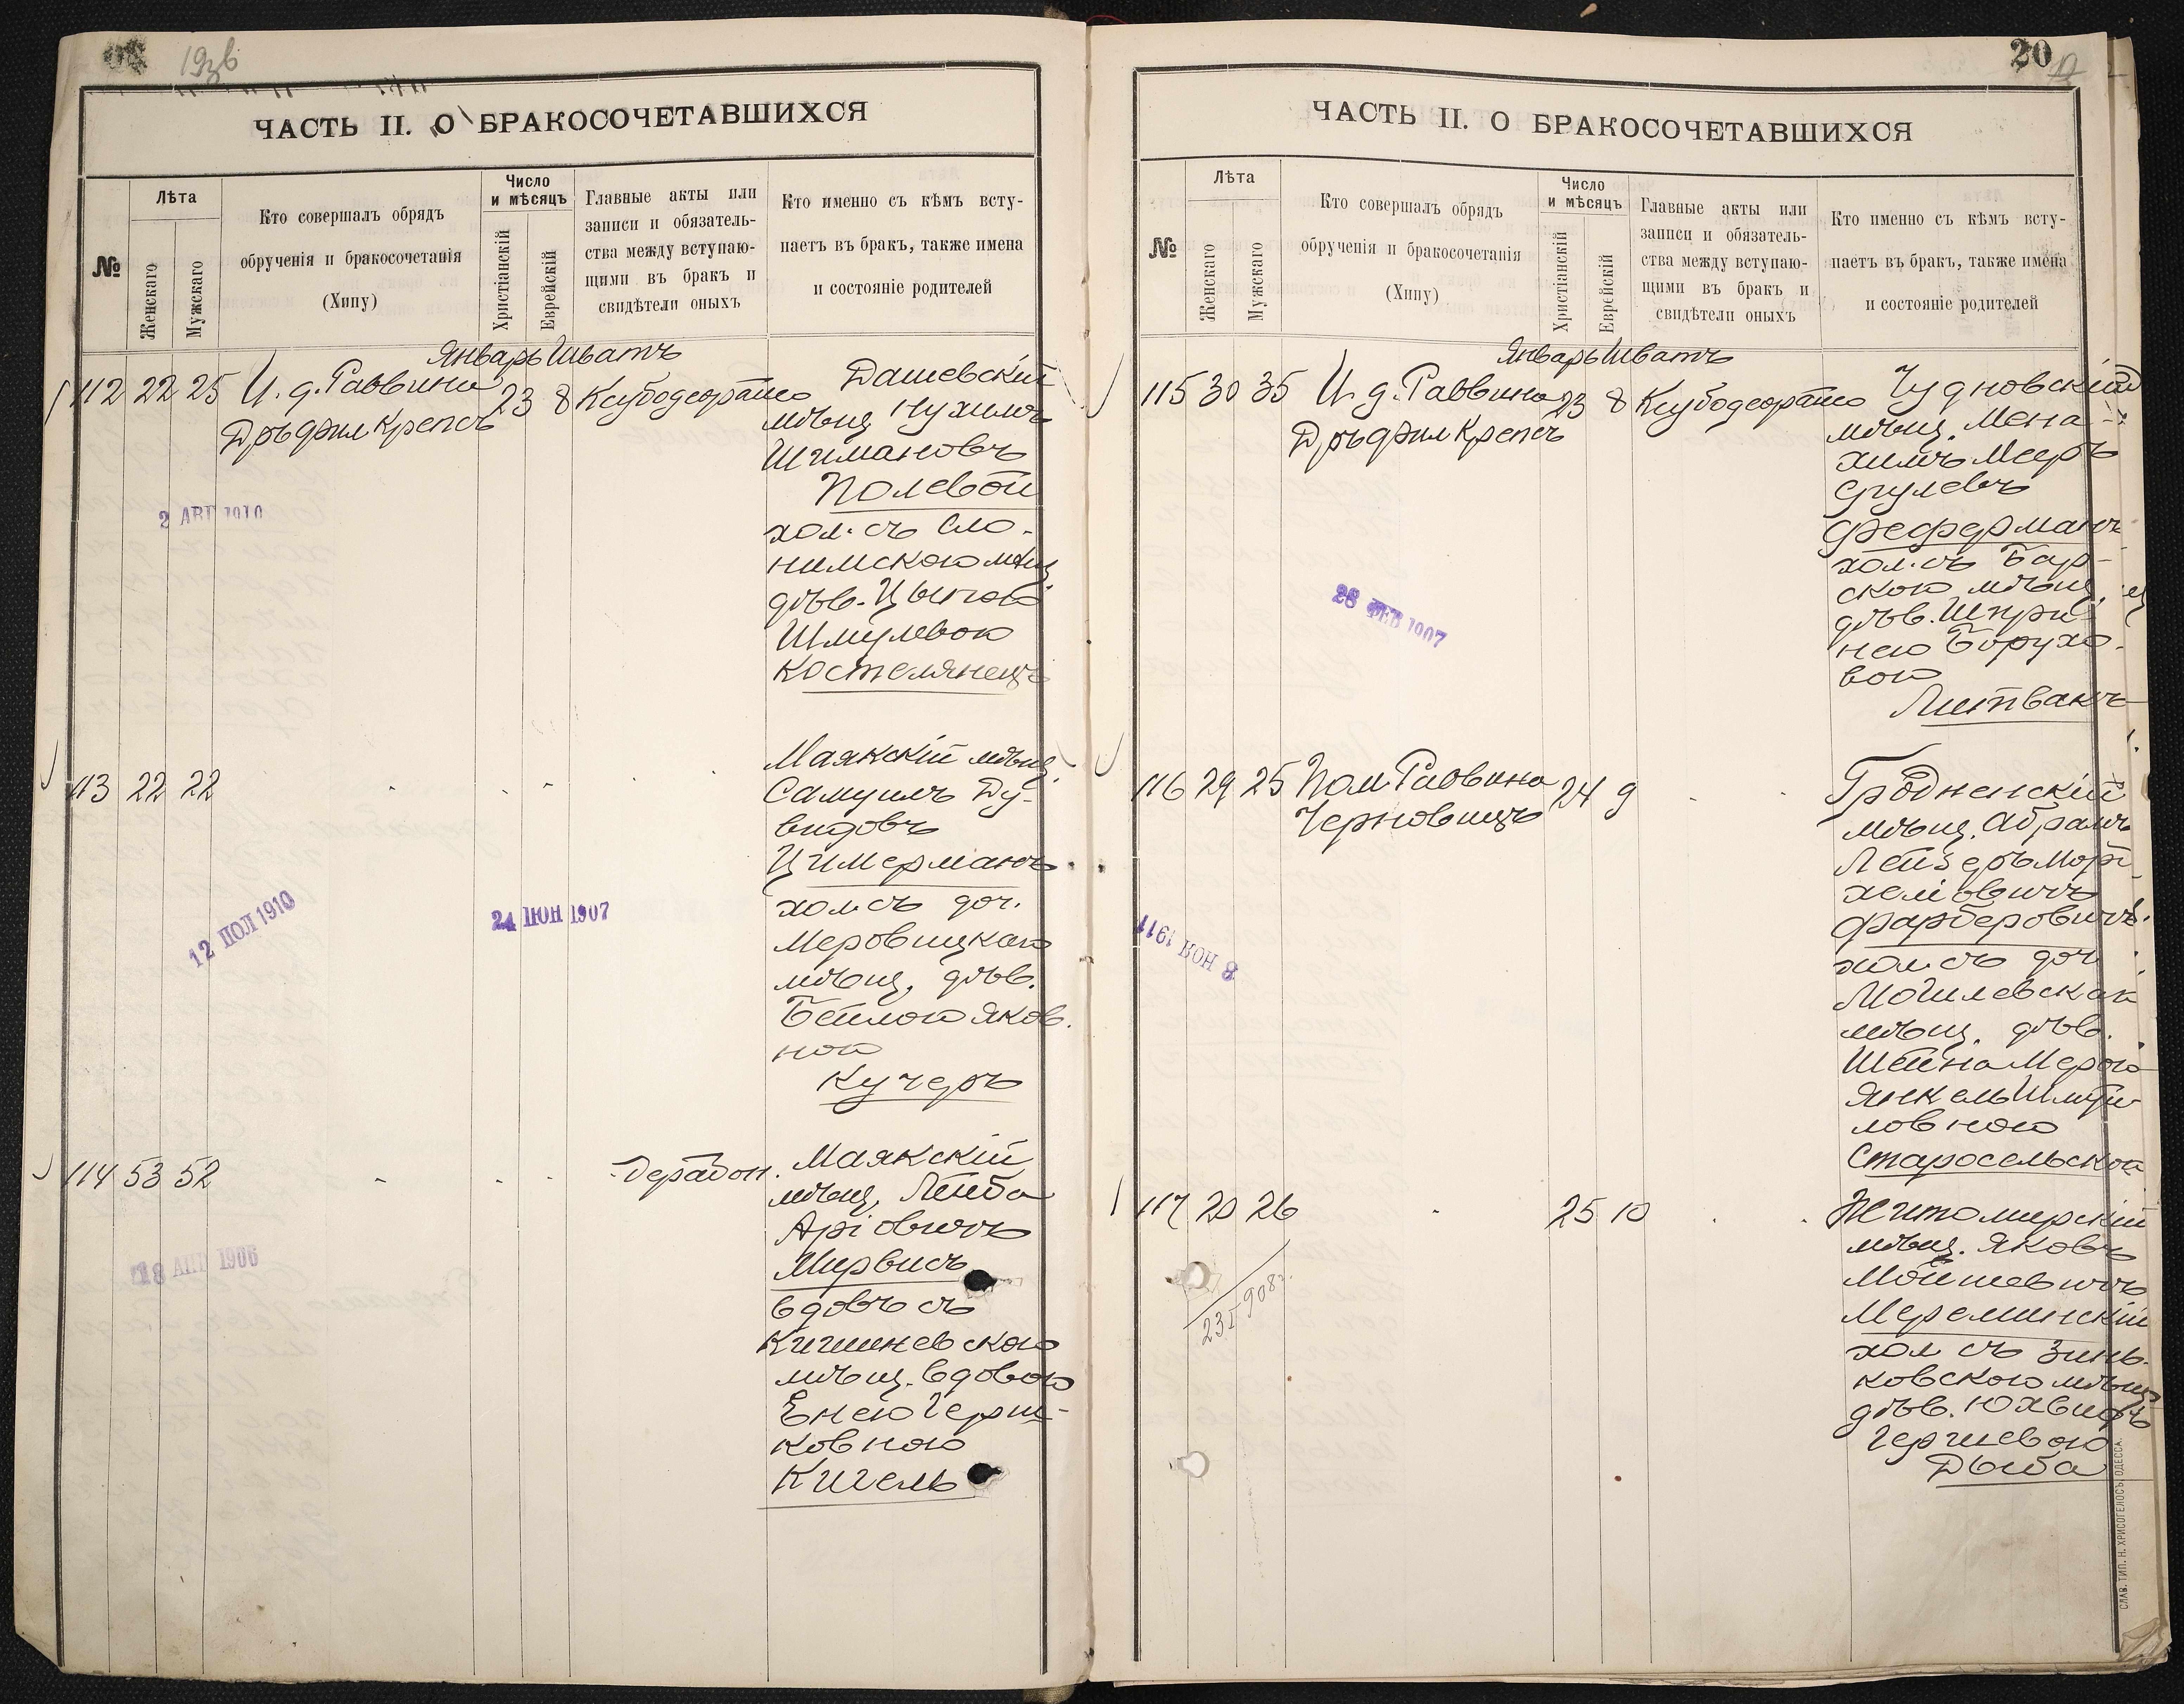 19об
ЧАСТЬ II. О БРАКОСОЧЕТАВШИХСЯ
№
Лѣта
Женскаго
Мужскаго
Кто совершалъ обрядъ
обрученія и бракосочетанія
(Хипу)
Число
и мѣсяцъ
Христіанскій
Еврейскій
Главные акты или
записи и обязатель-
ства между вступаю-
щими въ бракъ и
свидѣтели оныхъ
Кто именно съ кѣмъ всту-
паетъ въ бракъ, также имена
и состояніе родителей
Январь Шватъ
112 22 25 И. д. Раввина 23 8
Дръ фил Крепсъ
Дашевскій
мѣщ. Нухимъ
Шимановъ
Полевой
хол. съ Сло-
нимскою мѣщ.
дѣв. Цыпою
Шмулевою
Костелянецъ
2 АВГ 1910
113 22 22
Маякскій мѣщ.
Самуилъ Ду-
видовъ
Цимерманъ
хол. съ доч.
Меровицкаго
мѣщ. дѣв.
Бейлою Яков.
ною
Кучеръ
12 ПОЛ 1910
24 ІЮН 1907
114 53 52
Маякскій
мѣщ. Лейба
Аріовичъ
Мирвисъ
вдовъ съ
Кишиневскою
мѣщ. вдовою
Енею Герш-
ковною
Кигель
1906
20
ЧАСТЬ II. О БРАКОСОЧЕТАВШИХСЯ
№
Лѣта
Женскаго
Мужскаго
Кто совершалъ обрядъ
обрученія и бракосочетанія
(Хипу)
Число
и мѣсяцъ
Христіанскій
Еврейскій
Главные акты или
записи и обязатель-
ства между вступаю-
щими въ бракъ и
свидѣтели оныхъ
Кто именно съ кѣмъ всту-
паетъ въ бракъ, также имена
и состояніе родителей
Январь Шватъ
115 30 35 И. д. Раввина 23 8
Дръ фил Крепсъ
Чудновскій
мѣщ. Мена-
химъ Мееръ
Срулевъ
Фефферманъ
хол. съ Бар-
скою мѣщ.
дѣв. Шпри-
нею Борухо-
вою
Литвакъ
26 ФЕВ 1907
116 29 25 Пом Раввина 24 9
Черновицъ
Гродненскій
мѣщ. Абрамъ
ЛейзеръМорт-
хеліовичъ
Фарберовичъ
хол. съ доч
Могилевскаго
мѣщ. дѣв.
Шейна Мерою
Янкель Шмуй-
ловною
Старосельскою
8 НОЯ 1911
117 20 26 25 10
Житомирскій
мѣщ. Яковъ
Мойшевичъ
Мереминскій
хол съ Зинь-
ковскою мѣщ.
дѣв. Юхвидъ
Гершевою
Дыба
23 I 908 г.
СЛАВ. ТИП. Н. ХРИСОГЕЛОСЪ, ОДЕССА.